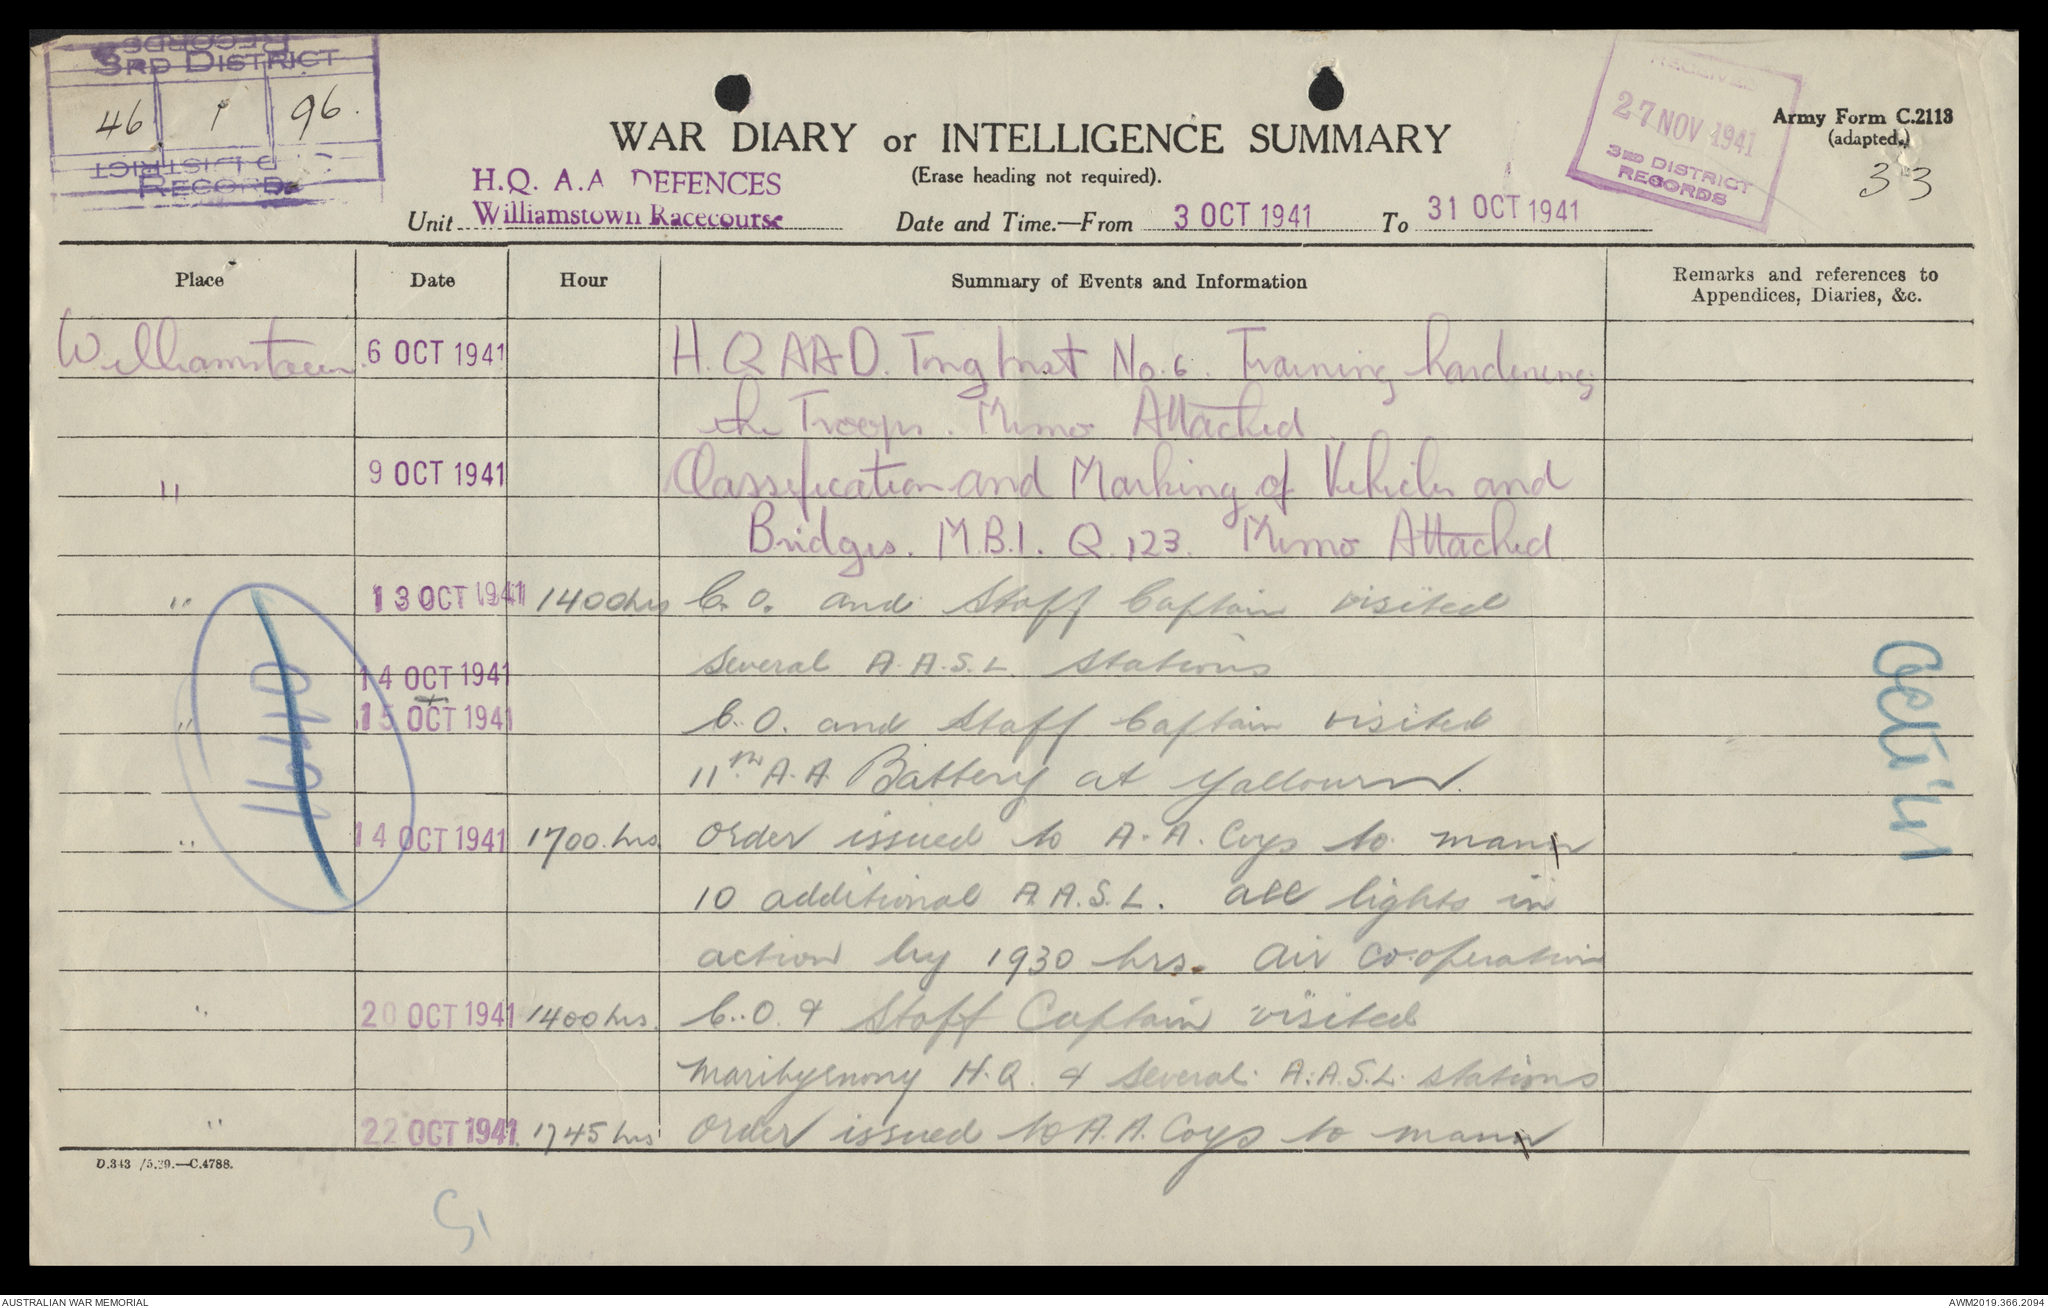 RECORDS
3RD DISTRICT
46 1 96.
3RD DISTRICT
RECORDS
WAR DIARY or INTELLIGENCE SUMMARY
(Erase heading not required).
Army Form C.2118
(adapted.)
33
RECEIVED
27 NOV 1941
3RD DISTRICT
RECORDS
Unit H.Q. A.A DEFENCES
Williamstown Racecourse
Date and Time.—From 3 OCT 1941 To 31 OCT 1941
Place Date Hour Summary of Events and Information Remarks and references to Appendices, Diaries, &c.
Williamstown 6 OCT 1941 H.Q AAD. Tng Inst No. 6. Training hardening
the Troops. Memo Attached
" 9 OCT 1941 Classification and Marking of Vehicles and
Bridges. M.B.1. Q.123. Memo Attached
" 13 OCT 1941 1400hrs C.O. and Staff Captain visited
14 OCT 1941 several A.A.S.L. stations
" 15 OCT 1941 C.O. and Staff Captain visited
11th A.A Battery at Yallourn.
" 14 OCT 1941 1700.hrs Order issued to A.A. Coys to mann
10 additional A.A.S.L. all lights in
action by 1930 hrs. Air co-operation
" 20 OCT 1941 1400hrs. C.O. & Staff Captain visited
Maribyrnong H.Q. & several A.A.S.L. stations
" 22 OCT 1941 1745 hrs Order issued to A.A. Coys to mann
D.343 /5.39.—C.4788.
AUSTRALIAN WAR MEMORIAL
AWM2019.366.2094